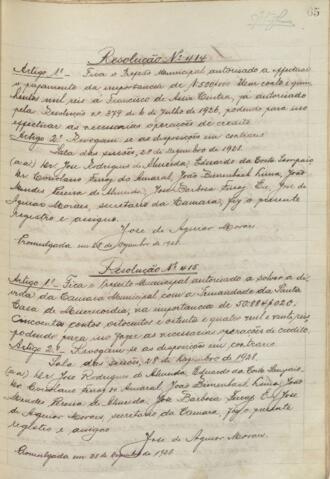 65
Resolução Nº 414
Artigo 1º - Fica o Prefeito Municipal autorisado a effectuar
o pagamento da importancia de 1:500$000 Um conto e quin
hentos mil reis à Francisco de Assis Cintra, já autorisado
pela Resolução nº 379 de 6 de Julho de 1926, podendo para isso
effectuar as necessarias operações de credito.
Artigo 2º Revogam-se as disposições em contrario
Sala das sessões, 28 de Dezembro de 1928.
(a.a) Dr. José Rodrigues de Almeida, Eduardo da Costa Sampaio,
Dr. Coriolano Ferraz do Amaral, João Lima, João
Mendes Pereira de Almeida, José Barbosa Ferraz. Eu, José de
Aguiar Moraes, secretario da Camara, fiz o presente
registro e assigno.
José de Aguiar Moraes
Promulgada em 28 de Dezembro de 1928.
Resolução Nº 415
Artigo 1º Fica o Prefeito Municipal autorisado a solver a di-
vida da Camara Municipal com a Irmandade da Santa
Casa de Misericordia, na importancia de 50:884$020,
Cincoenta contos oitocentos e oitenta e quatro mil e vinte reis,
podendo para isso fazer as necessarias operações de credito.
Artigo 2º Revogam-se as disposições em contrario
Sala das Sessões, 28 de Dezembro de 1928.
(a.a) Dr. José Rodrigues de Almeida, Eduardo da Costa Sampaio,
Dr. Coriolano Ferraz do Amaral, João Lima, João
Mendes Pereira de Almeida, José Barbosa Ferraz. Eu, José
de Aguiar Moraes, secretario da Camara, fiz o presente
registro e assigno
José de Aguiar Moraes.
Promulgada em 28 de Dezembro de 1928